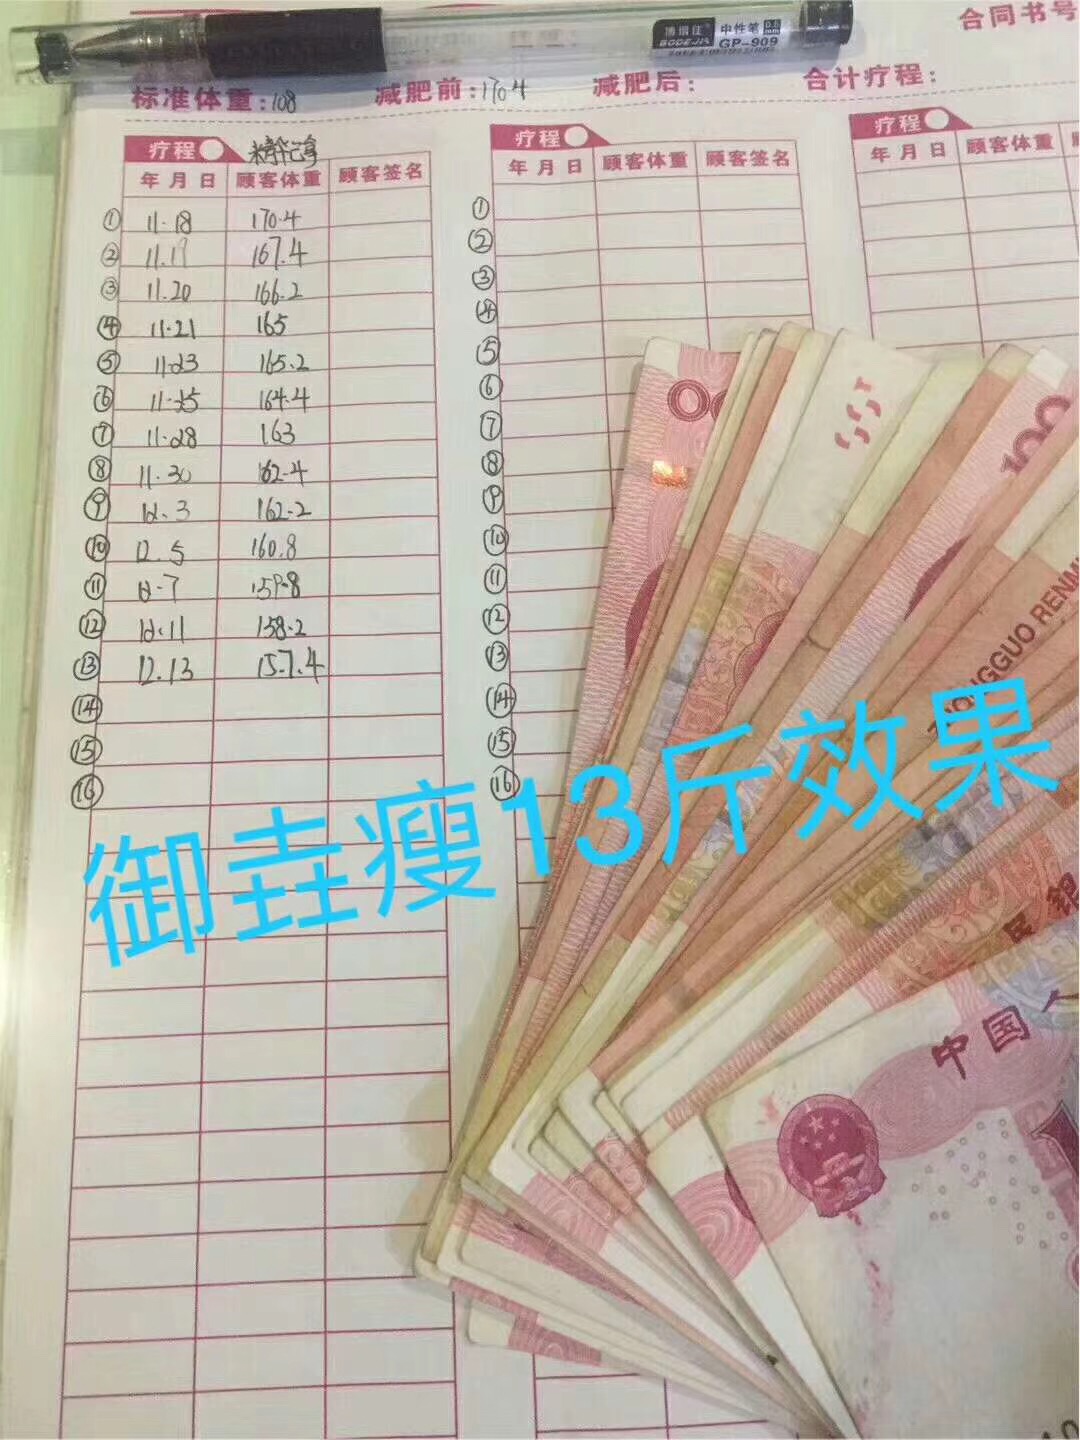 合同书号
博绢仕 中性笔 0.5mm
BODEJIA GP-909
标准体重:108 减肥前:170.4 减肥后: 合计疗程:
疗程
年 月 日 顾客体重 顾客签名
① 11.18 170.4
② 11.19 167.4
③ 11.20 166.2
④ 11.21 165
⑤ 11.23 165.2
⑥ 11.25 164.4
⑦ 11.28 163
⑧ 11.30 162.4
⑨ 12.3 162.2
⑩ 12.5 160.8
⑪ 12.7 159.8
⑫ 12.11 158.2
⑬ 12.13 157.4
⑭
⑮
⑯
疗程
年 月 日 顾客体重 顾客签名
①
②
③
④
⑤
⑥
⑦
⑧
⑨
⑩
⑪
⑫
⑬
⑭
⑮
⑯
疗程
年 月 日 顾客体重
御垚瘦13斤效果
100
ZHONGGUO RENMI
中国人